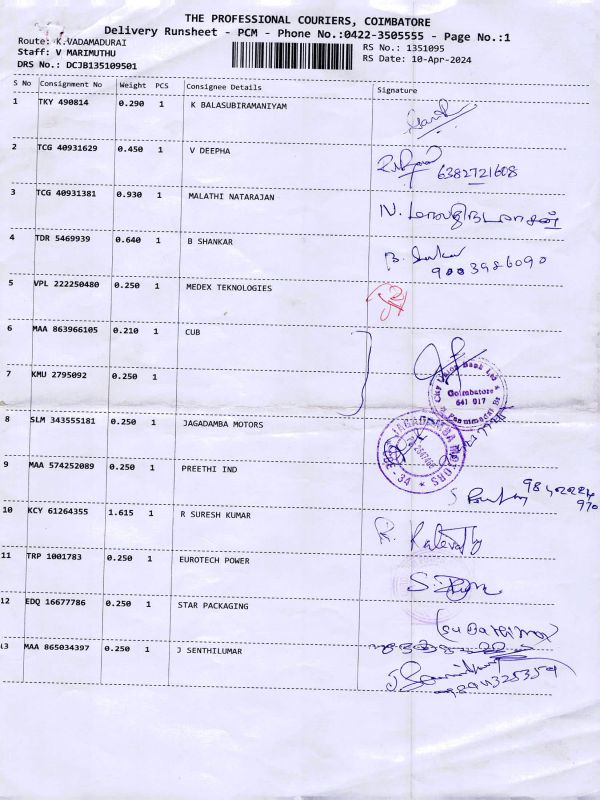 THE PROFESSIONAL COURIERS, COIMBATORE
Delivery Runsheet - PCM - Phone No.:0422-3505555 - Page No.:1
Route: K.VADAMADURAI
Staff: V MARIMUTHU
DRS No.: DCJB135109501
RS No.: 1351095
RS Date: 10-Apr-2024
S No Consignment No Weight PCS Consignee Details Signature
1 TKY 490814 0.290 1 K BALASUBIRAMANIYAM
2 TCG 40931629 0.450 1 V DEEPHA 6382721608
3 TCG 40931381 0.930 1 MALATHI NATARAJAN N.
4 TDR 5469939 0.640 1 B SHANKAR B. Shankar
9003986090
5 VPL 222250480 0.250 1 MEDEX TEKNOLOGIES
6 MAA 863966105 0.210 1 CUB
City Union Bank Ltd
Coimbatore
641 017
7 KMU 2795092 0.250 1
8 SLM 343555181 0.250 1 JAGADAMBA MOTORS
JAGADAMBA MOTORS
9 MAA 574252089 0.250 1 PREETHI IND
10 KCY 61264355 1.615 1 R SURESH KUMAR
11 TRP 1001783 0.250 1 EUROTECH POWER
12 EDQ 16677786 0.250 1 STAR PACKAGING
13 MAA 865034397 0.250 1 J SENTHILUMAR